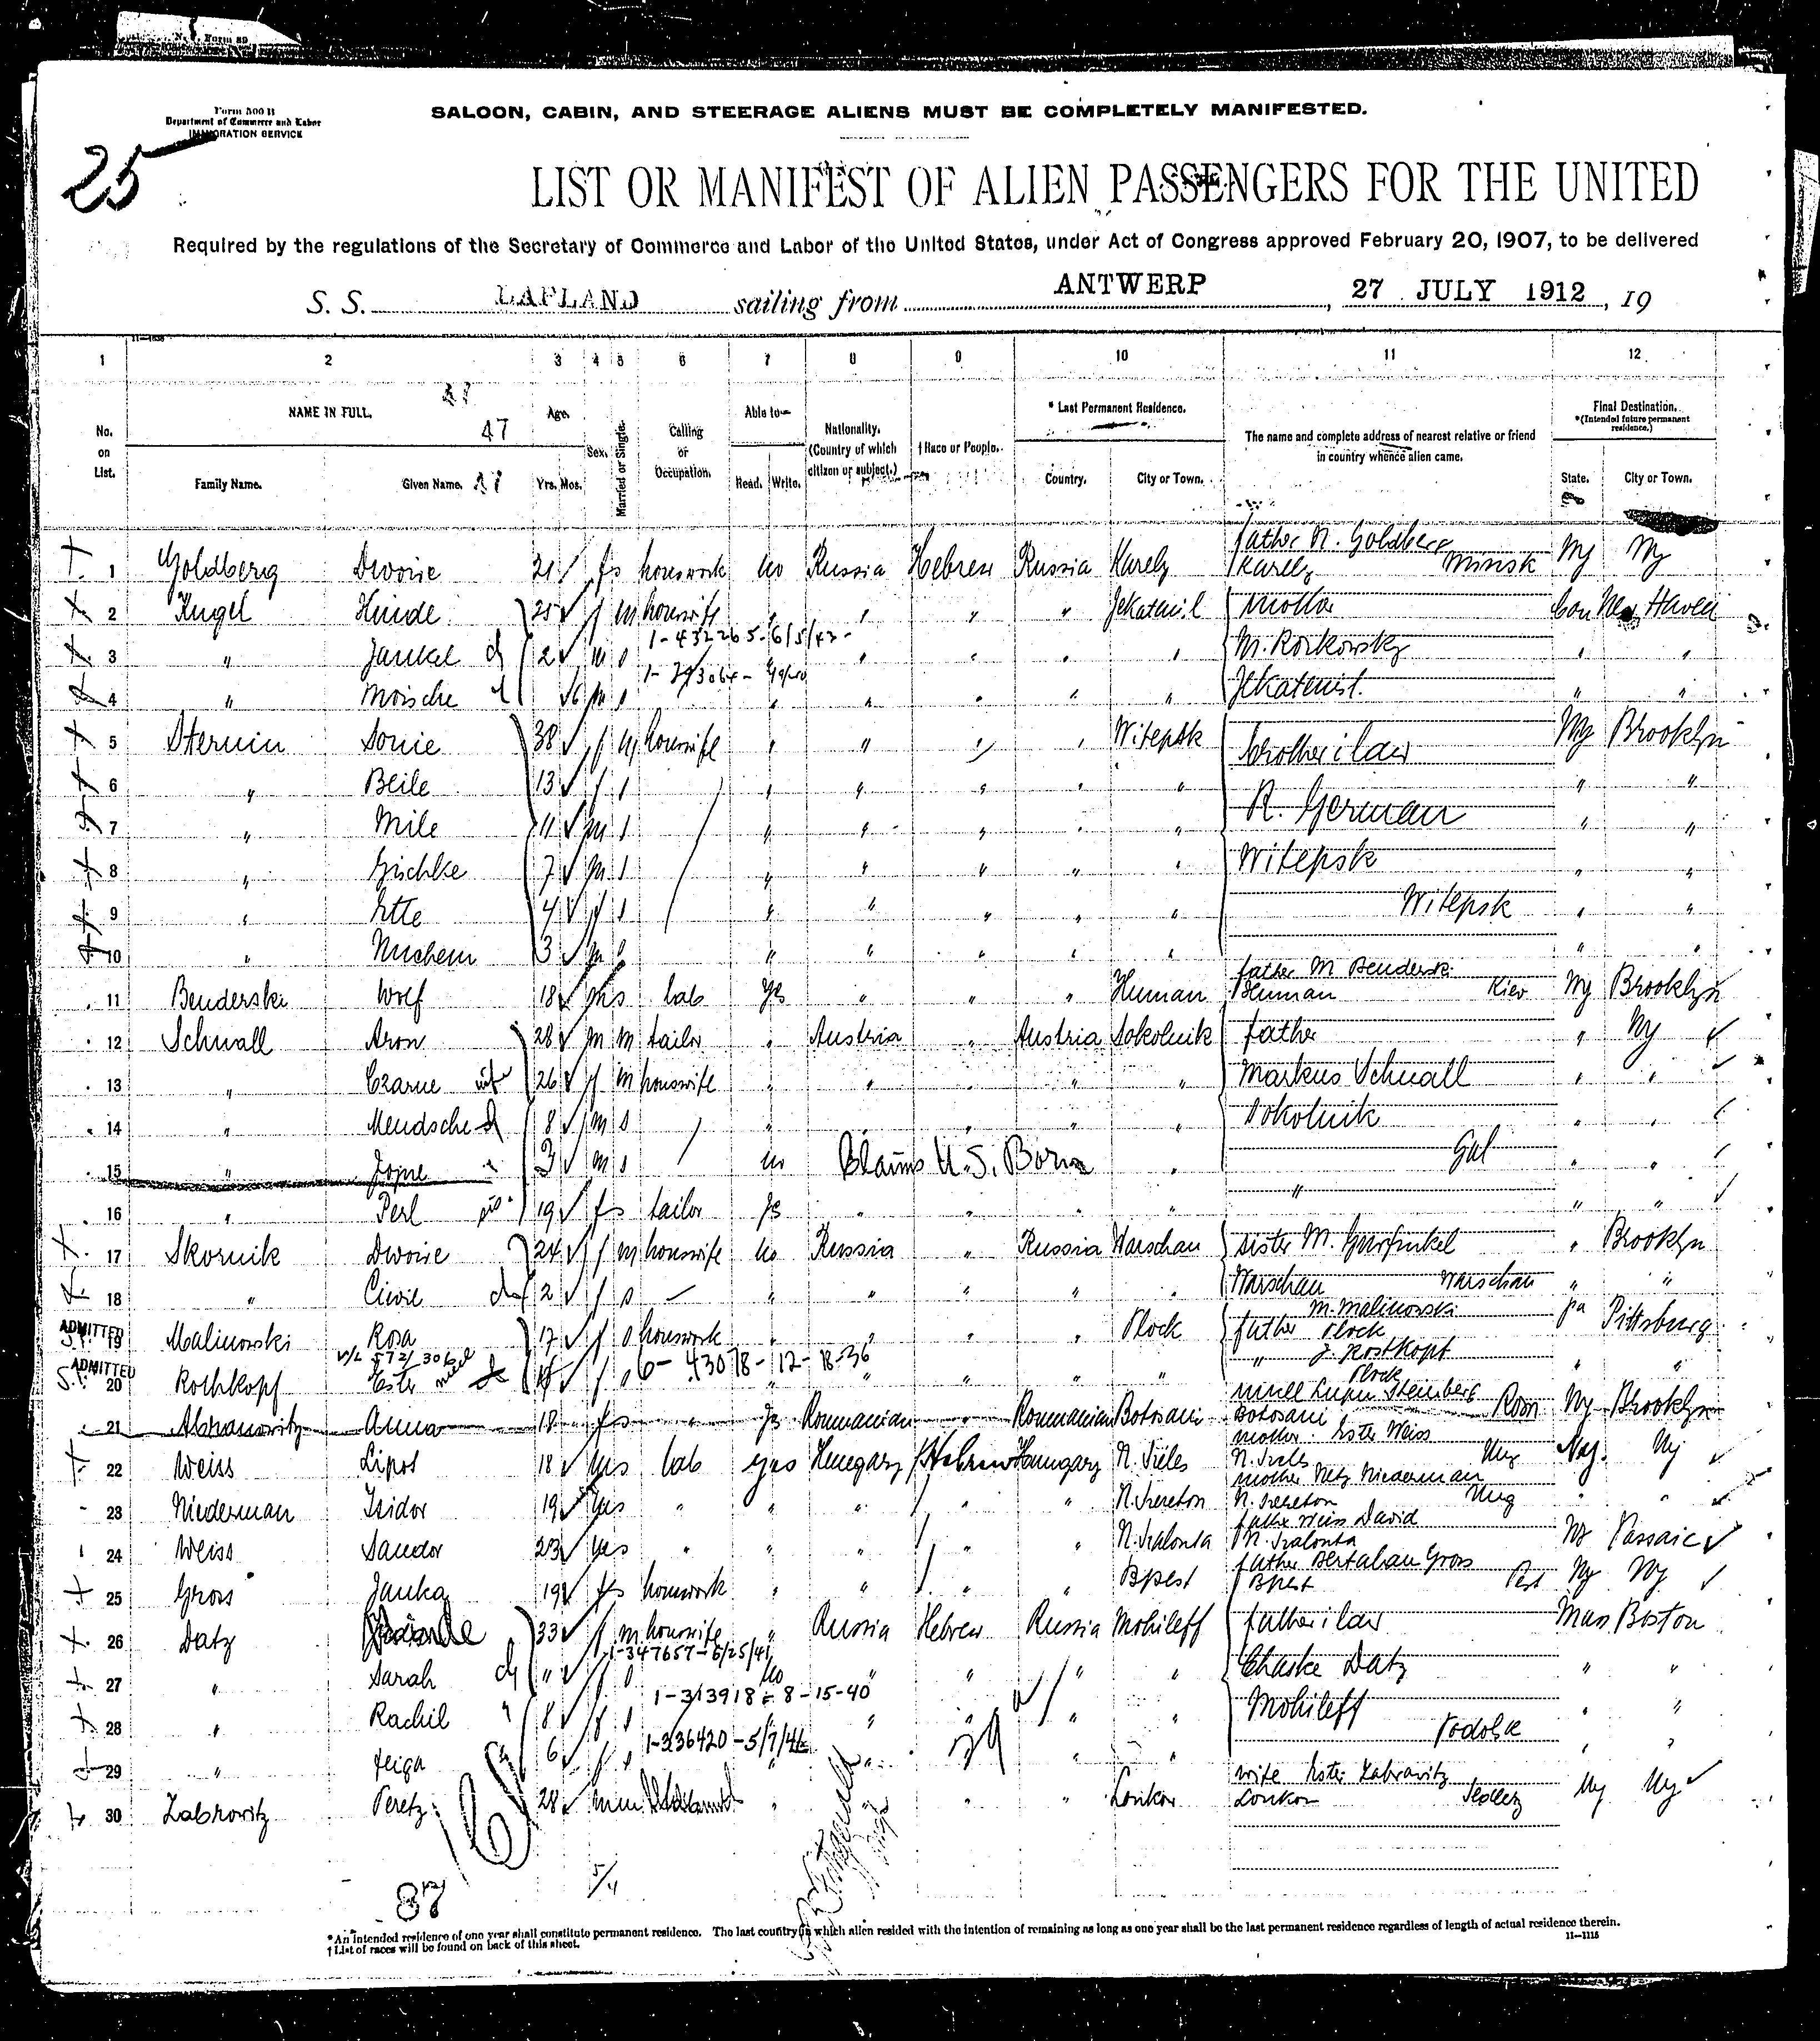 Form 500 B
Department of Commerce and Labor
IMMIGRATION SERVICE
25
SALOON, CABIN, AND STEERAGE ALIENS MUST BE COMPLETELY MANIFESTED.
LIST OR MANIFEST OF ALIEN PASSENGERS FOR THE UNITED
Required by the regulations of the Secretary of Commerce and Labor of the United States, under Act of Congress approved February 20, 1907, to be delivered
S. S. LAPLAND sailing from ANTWERP, 27 JULY 1912, 19
1 2 3 4 5 6 7 8 9 10 11 12
No. on List. NAME IN FULL. Family Name. Given Name. Age. Yrs. Mos. Sex. Married or Single. Calling or Occupation. Able to— Read. Write. Nationality. (Country of which citizen or subject.) † Race or People. * Last Permanent Residence. Country. City or Town. The name and complete address of nearest relative or friend in country whence alien came. Final Destination. *(Intended future permanent residence.) State. City or Town.
47
1 Goldberg Dwoire 21 f s houswork no Russia Hebrew Russia Karelz father N. Goldberg Karelz Minsk Ny Ny
2 Kugel Hinde 25 f m houswife " " " " Jekatenil mother Con New Haven
3 " Jankel ch 2 m s 1-432265-6/5/43 " " " " M. Roikowsky " "
4 " Moische 6 m s " " " " " Jekatenist. " "
5 Sternin Sonie 38 f m houswife " " " " Witepsk brother i law Ny Brooklyn
6 " Beile 13 f s " " " " " " "
7 " Mile 11 m s " " " " " R. German " "
8 " Zischke 7 m s " " " " " Witepsk " "
9 " Ette 4 f s " " " " " Witepsk " "
10 " Nuchem 3 m s " " " " " " "
11 Benderski Wolf 18 m s lab ys " " " Human father M Benderski Human Kiew Ny Brooklyn
12 Schnall Aron 28 m m tailor " Austria " Austria Sokolnik father " Ny
13 " Czarne wife 26 f m houswife " " " " " Markus Schnall " "
14 " Mendsche 8 m s " " " " " Sokolnik " "
15 " Josne 3 m s no Claims U. S. Born " Gal " "
16 " Perl sis 19 f s tailor ys " " " " " " "
17 Skornik Dwoire 24 f m houswife no Russia " Russia Warschau sister M. Gurfinkel " Brooklyn
18 " Ciwil ch 2 f s " " " " " Warschau Warschau " "
ADMITTED
19 Malinowski Rosa 17 f s houswork " " " " Plock M. Malinowski father Plock Pa Pittsburg
ADMITTED
20 Rothkopf Ester f s 6-43078-12-18-36 " " " " " J. Rostkopf Plock " "
21 Abramowitz Anna 18 f s " ys Roumanian " Roumanian Botosani Steinberg Botosani Roon Ny Brooklyn
22 Weiss Lipot 18 m s lab yes Hungary Hebrew Hungary mother Ester Weiss Ung Ny
23 Niederman Isidor 19 m s " " " " " mother Netz Niederman Ung " "
24 Weiss Sandor 23 m s " " " " " N. Szalonta father Weiss David N. Szalonta Passaic
25 Gross Janka 19 f s houswork " " " " Bpest father Bertalan Gross Bpest Pest Ny Ny
26 Datz 33 f m houswife " Russia Hebrew Russia Mohileff father i law Mass Boston
27 " Sarah ch " f s 1-347657-6/25/41 no " " " " Chaske Datz " "
28 " Rachil " 8 f s 1-313918-8-15-40 " " " " Mohileff " "
29 " Feiga 6 f s 1-336420-5/7/41 " " " " Podolsk " "
30 Zabrowitz Peretz 28 m m " " " " Loukow wife Ester Zabrowitz Loukow Sedlez Ny Ny
87
5/4
*An intended residence of one year shall constitute permanent residence. The last country in which alien resided with the intention of remaining as long as one year shall be the last permanent residence regardless of length of actual residence therein.
† List of races will be found on back of this sheet.
11—1115